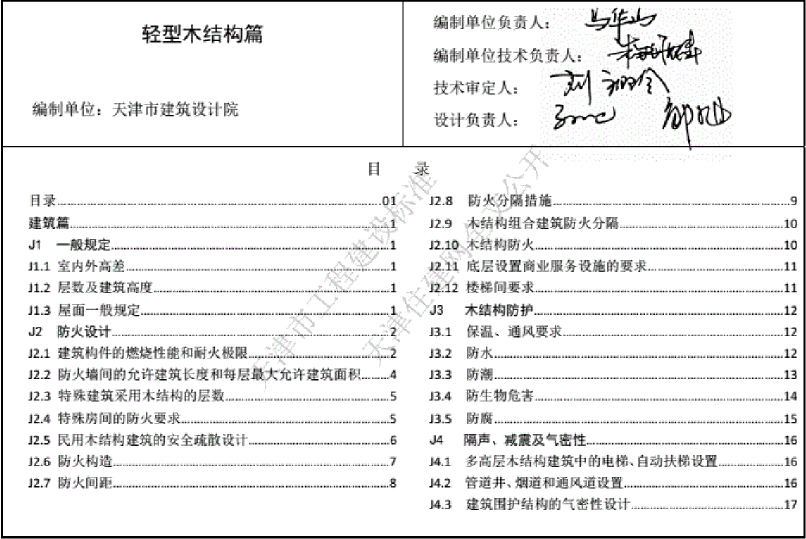 轻型木结构篇
编制单位：天津市建筑设计院
编制单位负责人：
编制单位技术负责人：
技术审定人：
设计负责人：
目 录
目录 01
建筑篇 1
J1 一般规定 1
J1.1 室内外高差 1
J1.2 层数及建筑高度 1
J1.3 屋面一般规定 1
J2 防火设计 2
J2.1 建筑构件的燃烧性能和耐火极限 2
J2.2 防火墙间的允许建筑长度和每层最大允许建筑面积 4
J2.3 特殊建筑采用木结构的层数 5
J2.4 特殊房间的防火要求 5
J2.5 民用木结构建筑的安全疏散设计 6
J2.6 防火构造 7
J2.7 防火间距 8
J2.8 防火分隔措施 9
J2.9 木结构组合建筑防火分隔 10
J2.10 木结构防火 10
J2.11 底层设置商业服务设施的要求 11
J2.12 楼梯间要求 11
J3 木结构防护 12
J3.1 保温、通风要求 12
J3.2 防水 12
J3.3 防潮 13
J3.4 防生物危害 14
J3.5 防腐 15
J4 隔声、减震及气密性 16
J4.1 多高层木结构建筑中的电梯、自动扶梯设置 16
J4.2 管道井、烟道和通风道设置 16
J4.3 建筑围护结构的气密性设计 17
天津市工程建设标准
天津住建网全文公开